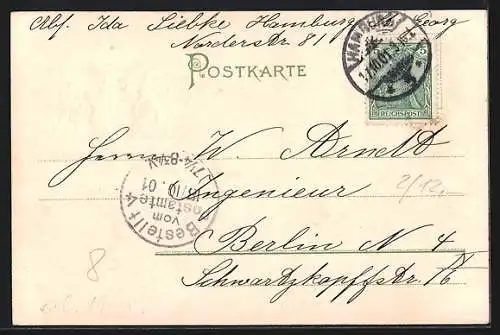 Abs. Ida Liebke Hamburg Georg
Norderstr. 81
POSTKARTE
HAMBURG
REICHSPOST
Herrn W. Arndt
Ingenieur
Berlin N 4
Schwartzkopffstr.
Bestellt
vom
Postamte 4
8